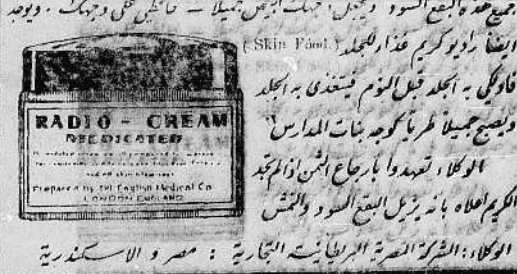 جميع هذه البقع السود ويجعل وجهك ابيض جميلا — حافظي على وجهك . ويوجد
ايضا راديو كريم غذاء للجلد (Skin Food.)
فادلكي به الجلد قبل النوم فيتغذى به الجلد
ويصبح جميلا طريا كوجه بنات المدارس
الوكلاء تعهدوا بارجاع الثمن اذا لم تجد
الكريم اعلاه بانه يزيل البقع السود والنمش
الوكلاء : الشركة المصرية البريطانية التجارية : مصر والاسكندرية
RADIO - CREAM
MEDICATED
Prepared by The English Medical Co
LONDON ENGLAND